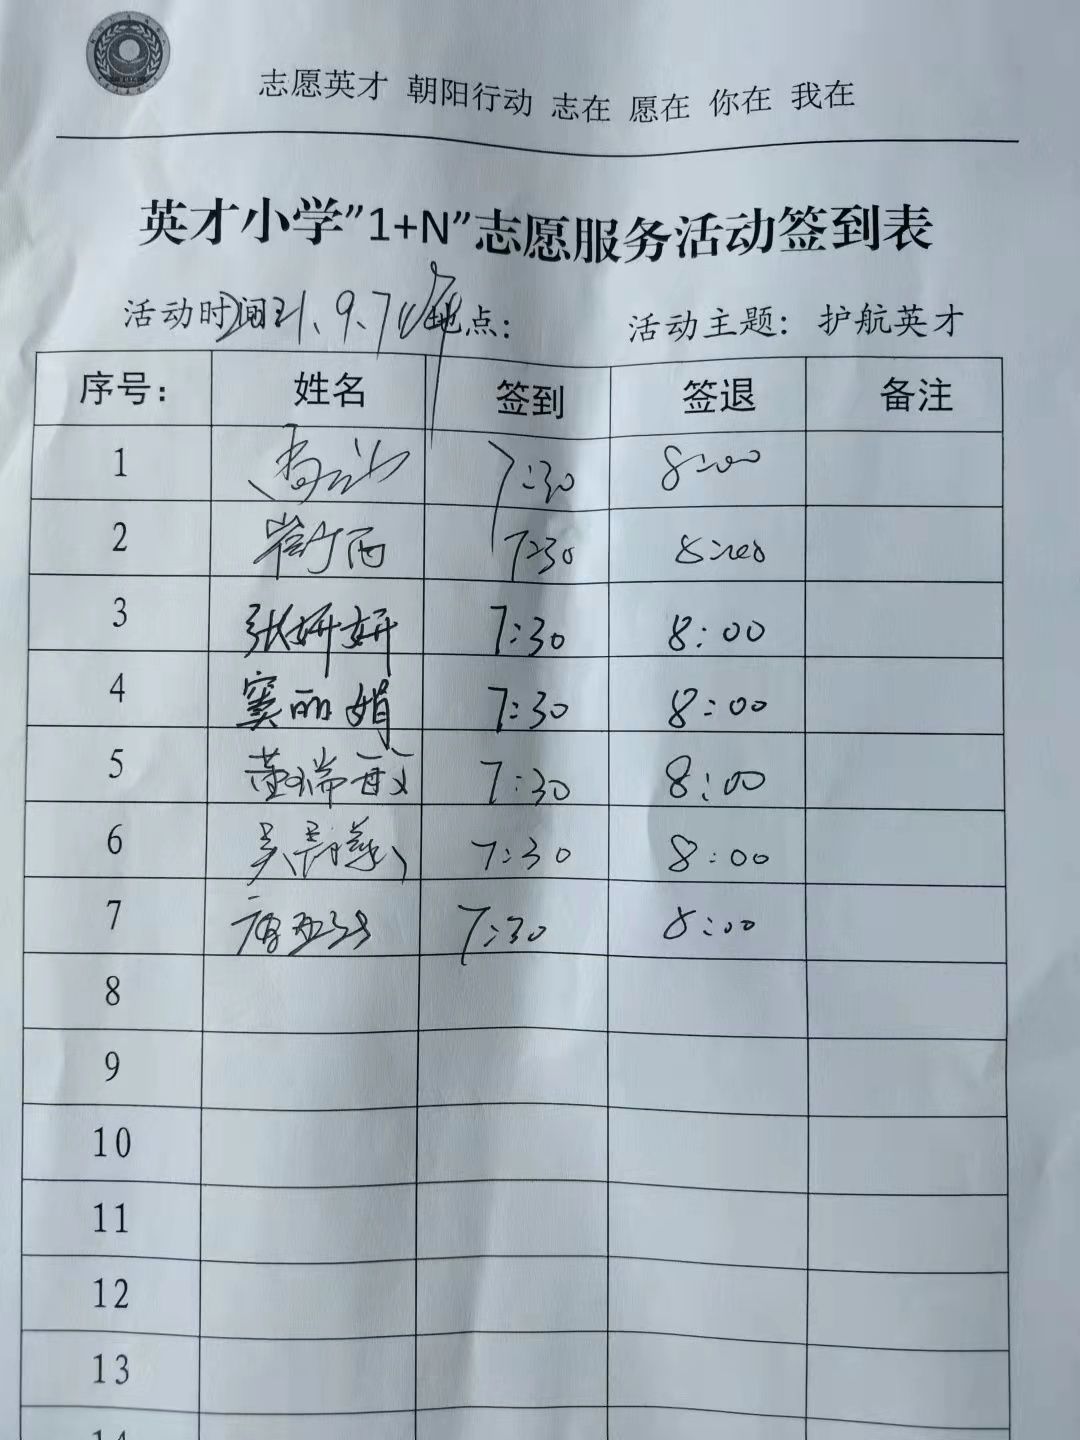 志愿英才 朝阳行动 志在 愿在 你在 我在
英才小学"1+N"志愿服务活动签到表
活动时间 2021、9、7 地点： 活动主题：护航英才
序号： 姓名 签到 签退 备注
1 7:30 8:00
2 7:30 8:00
3 张妍妍 7:30 8:00
4 窦丽娟 7:30 8:00
5 董瑞敏 7:30 8:00
6 吴 7:30 8:00
7 7:30 8:00
8
9
10
11
12
13
14